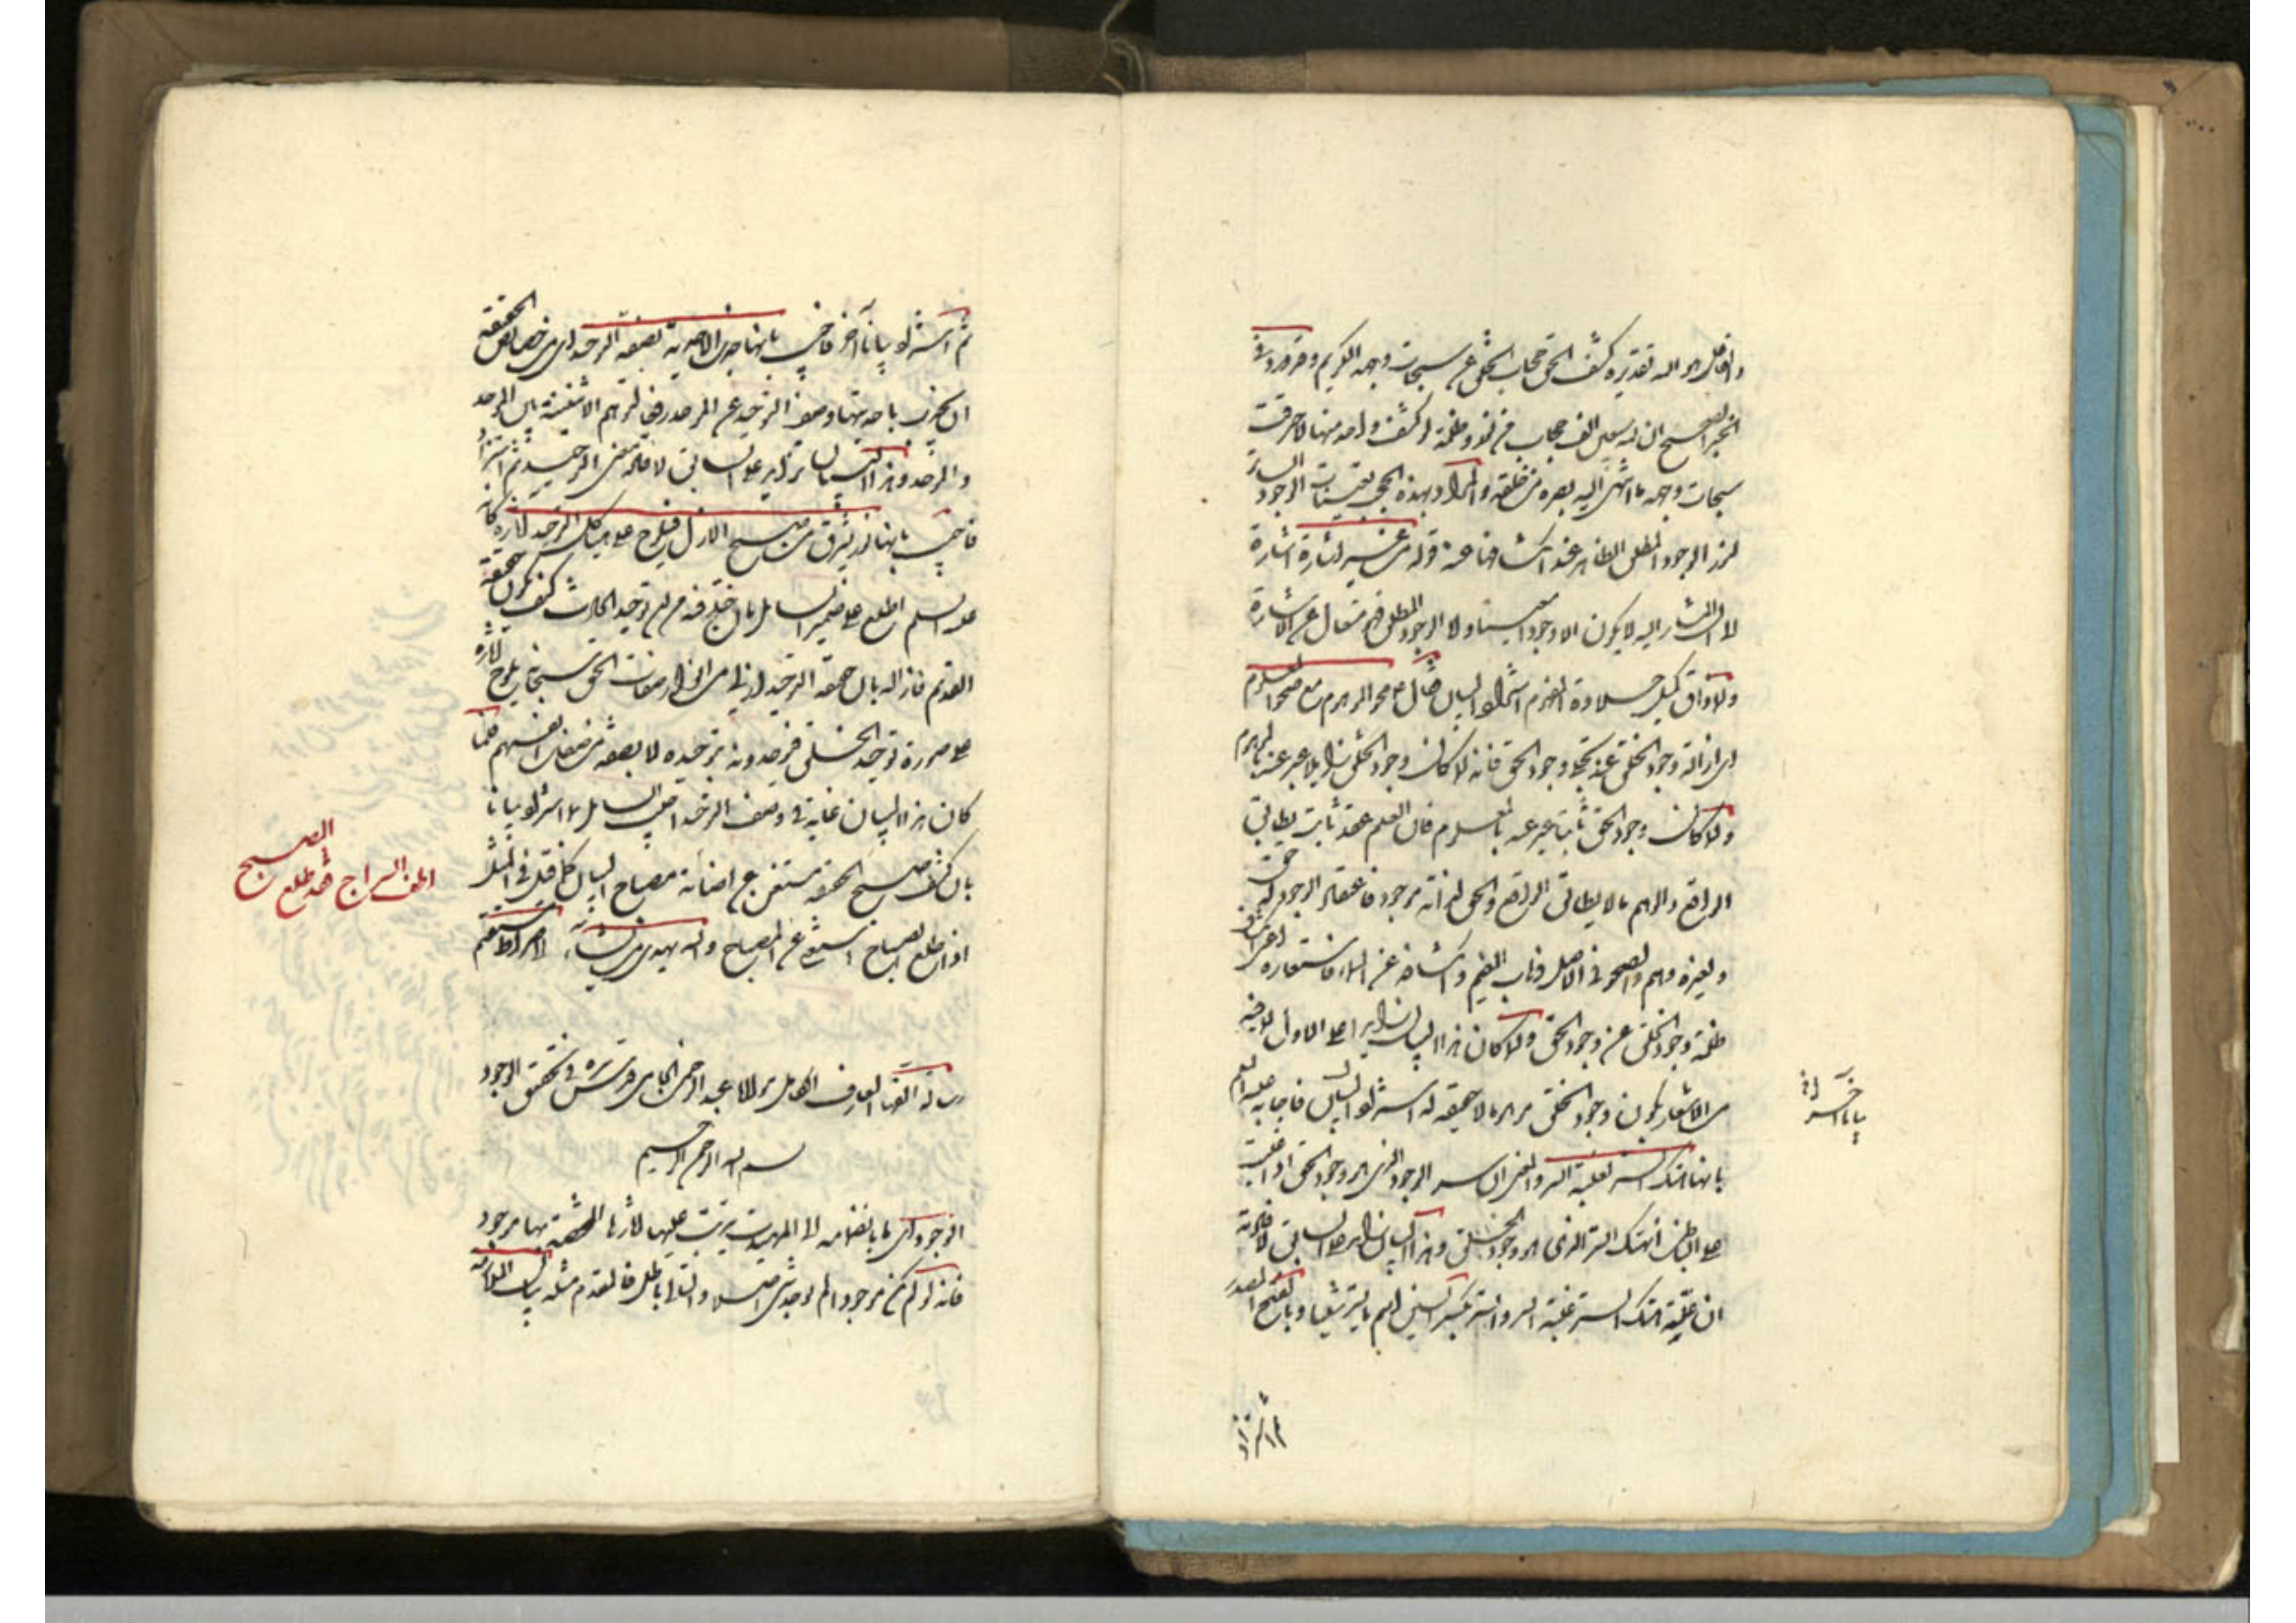 كشف الحق حجاب الخلق عن سبحات وجهه الكريم وقد ورد في
الخبر الصحيح ان لله سبعين الف حجاب من نور وظلمة لو كشف واحد منها لاحرقت
سبحات وجهه ما انتهى اليه بصره من خلقه والمراد بهذه الحجب تعينات الوجود الساترة
لنور الوجود المطلق الظاهر عند انكشافها عنه قوله من غير اشارة اشارة
لان المشار اليه لا يكون الا وجودا معينا ولا الوجود المطلق فهو متعال عن الاشارة
ولما ذاق كميل حلاوة استزاد البيان فقال محو الموهوم مع صحو المعلوم
اى ازالة وجود الخلق عند تجلى وجود الحق فانه لما كان وجود الخلق زايلا عبر عنه بالموهوم
ولما كان وجود الحق ثابتا عبر عنه بالمعلوم فان العلم عقد ثابت يطابق
الواقع والوهم ما لا يطابق الواقع والحق انه موجود فاعتقاد الوجود له حق
ولغيره وهم والصحو في الاصل ذهاب الغيم وانكشافه عن السماء فاستعاره
ظلمة وجود الخلق عن وجود الحق ولما كان هذا البيان زايدا على الاول لما فيه
من الاشعار بكون وجود الخلق موهوما لا حقيقة له استزاد البيان فاجابه عليه السلم
بانها هتك الستر لغلبة السر والمعنى ان سر الوجود الذى هو وجود الحق اذا غلب
على الباطن انهتك الستر الذى هو وجود الخلق وهذا البيان زايد على السابق لافادته
ان علة هتك الستر غلبة السر والستر بكسر السين اسم ما يستر شيئا وبالفتح المصدر
بيانا آخر
ثم استزاد
ثم استزاد بيانا آخر فاجيب بانها جذب الاحدية بصفة التوحيد اى من خصايص الحقيقة
ان تجذب باحديتها وصف التوحيد عن الموحد رفعا لتوهم الاثنينية بين الموحد
والموحد وهذا البيان زايد على السابق لافادته معنى التوحيد ثم استزاد
فاجيب بانها نور يشرق من صبح الازل فيلوح على هياكل التوحيد آثاره كانه
عليه السلم اطلع على ضمير السايل بان خلج فيه من ان توحيد الحادث كيف يكون حقيقة
القديم فازاله بان حقيقة التوحيد ازلى من صفات الحق سبحانه يلوح آثاره
على صورة توحيد الخلق فيوحدونه بتوحيده لا بصفة من صفات انفسهم فلما
كان هذا البيان غاية في وصف التوحيد اجيب السايل لما استزاد بيانا
بان كشف صبح الحقيقة مستغن عن اضاءة مصباح البيان كما قيل في المثل
اذا طلع الصباح استغنى عن المصباح والله يهدى من يشاء الى صراط مستقيم
اطف السراج فقد طلع
الصبح
رسالة الفها العارف الكامل مولانا عبد الرحمن الجامى قدس سره في تحقيق الوجود
بسم الله الرحمن الرحيم
الوجود اى ما بانضمامه الى الماهيات يترتب عليها آثارها المختصة بها موجود
فانه لو لم يكن موجودا لم يوجد شئ اصلا والتالى باطل فالمقدم مثله بيان الملازمة